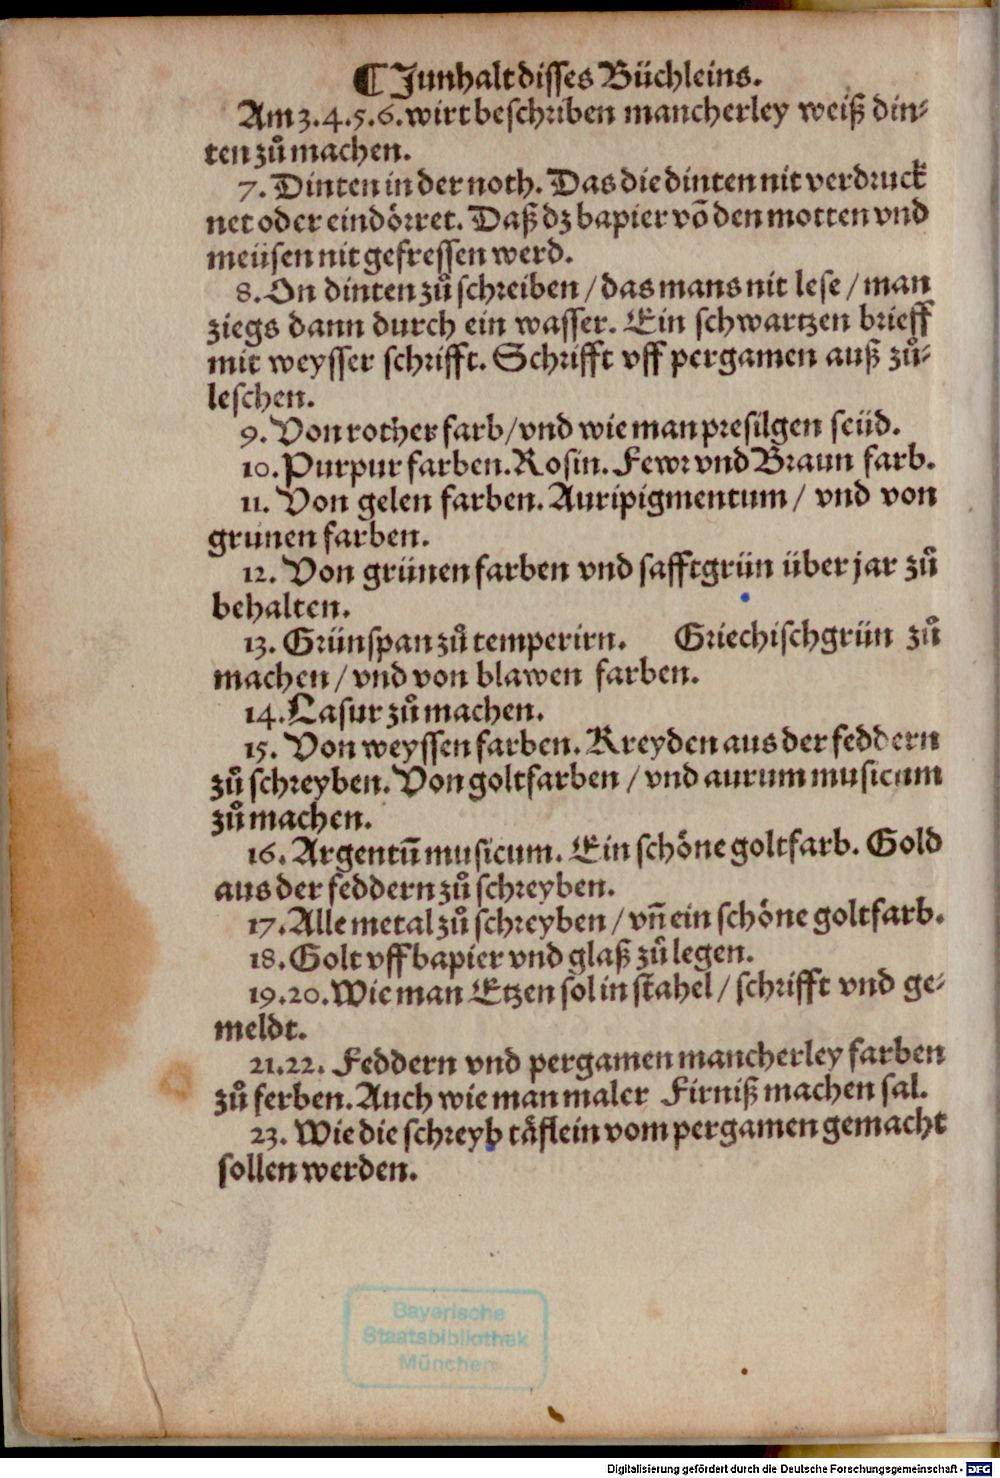 ¶ Innhalt disses Büchleins.
Am 3. 4. 5. 6. wirt beschriben mancherley weiß din⸗
ten zuͦ machen.
7. Dinten in der noth. Das die dinten nit verdruck
net oder eindörret. Daß dz bapier võ den motten vnd
meüsen nit gefressen werd.
8. On dinten zuͦ schreiben / das mans nit lese / man
ziegs dann durch ein wasser. Ein schwartzen brieff
mit weysser schrifft. Schrifft vff pergamen auß zuͦ⸗
leschen.
9. Von rother farb / vnd wie man presilgen seüd.
10. Purpur farben. Rosin. Fewr vnd Braun farb.
11. Von gelen farben. Auripigmentum / vnd von
grünen farben.
12. Von grünen farben vnd safftgrün über jar zuͦ
behalten.
13. Grünspan zuͦ temperirn. Griechischgrün zuͦ
machen / vnd von blawen farben.
14. Lasur zuͦ machen.
15. Von weyssen farben. Kreyden aus der feddern
zuͦ schreyben. Von goltfarben / vnd aurum musicum
zuͦ machen.
16. Argentũ musicum. Ein schöne goltfarb. Gold
aus der feddern zuͦ schreyben.
17. Alle metal zuͦ schreyben / vñ ein schöne goltfarb.
18. Golt vff bapier vnd glaß zuͦ legen.
19. 20. Wie man Etzen sol in stahel / schrifft vnd ge⸗
meldt.
21. 22. Feddern vnd pergamen mancherley farben
zuͦ ferben. Auch wie man maler Firniß machen sal.
23. Wie die schreyb täflein vom pergamen gemacht
sollen werden.
Bayerische
Staatsbibliothek
München
Digitalisierung gefördert durch die Deutsche Forschungsgemeinschaft - DFG